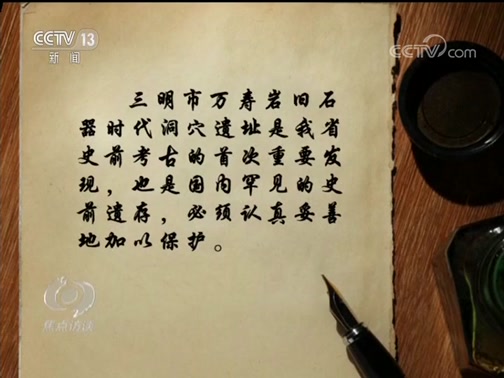 CCTV 13
新闻
CCTV.com
三明市万寿岩旧石
器时代洞穴遗址是我省
史前考古的首次重要发
现，也是国内罕见的史
前遗存，必须认真妥善
地加以保护。
焦点访谈